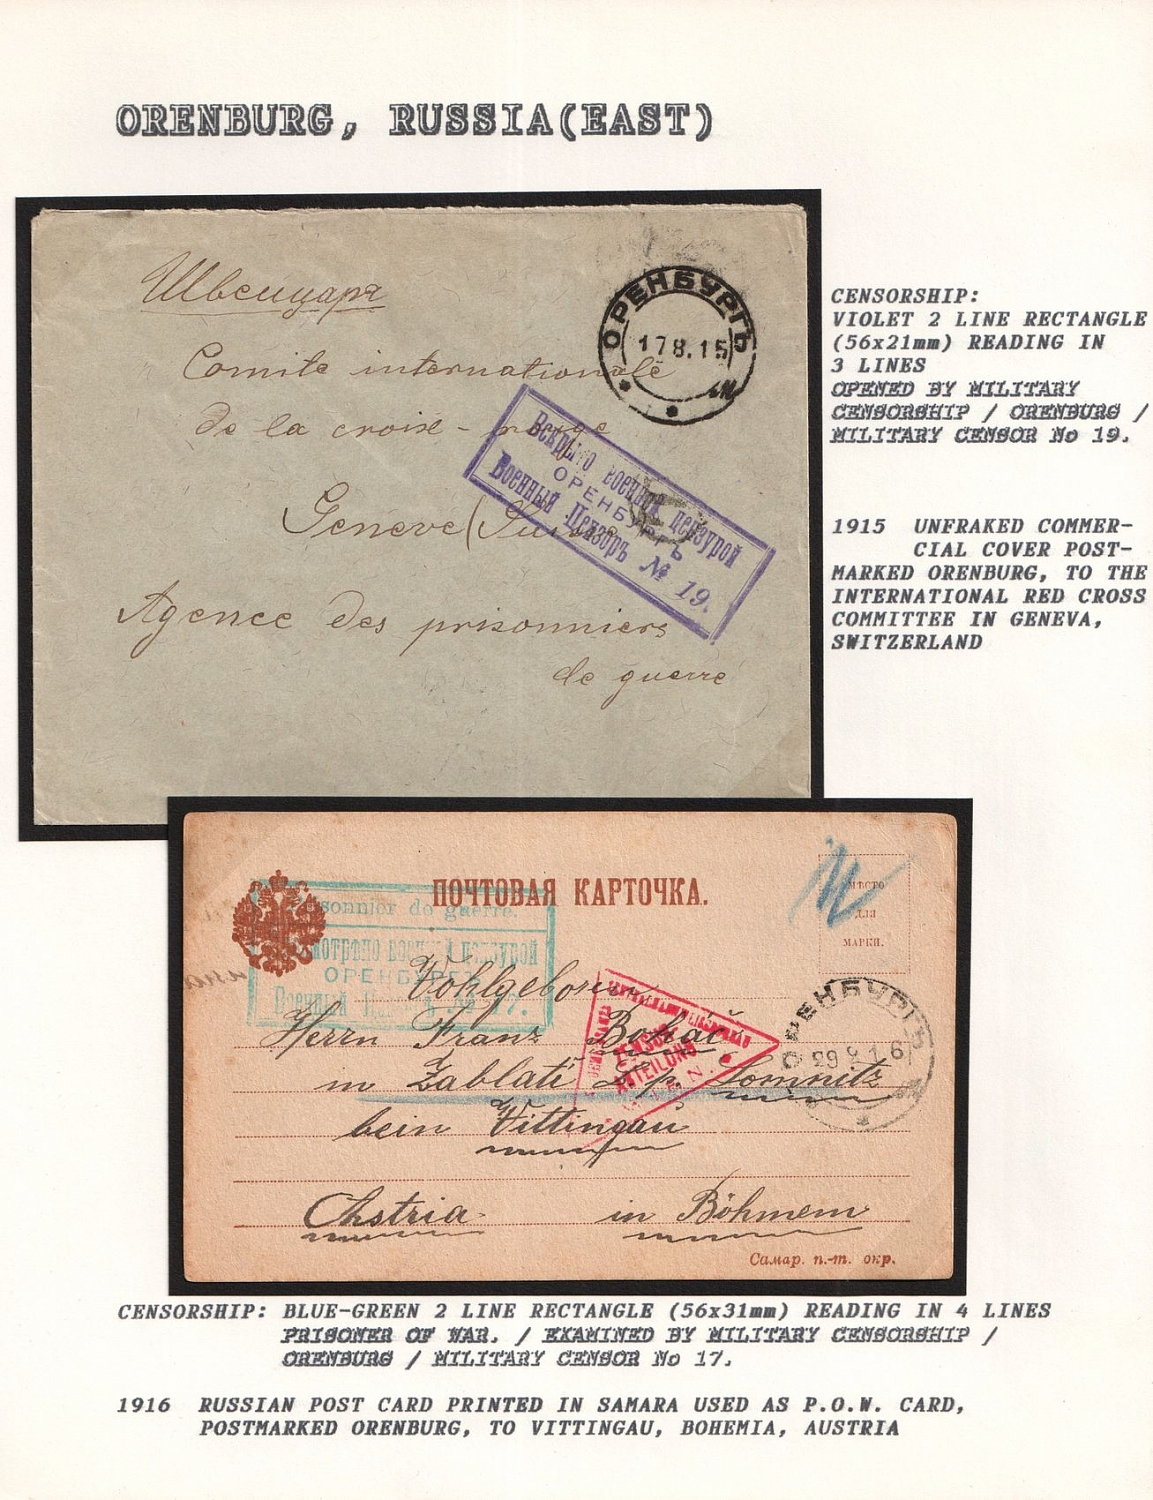 ORENBURG, RUSSIA(EAST)
Швейцарія
Comite internationale
de la croix-rouge
Geneve (Suisse
Agence des prisonniers
de guerre
ОРЕНБУРГЪ
17 8.15
Вскрыто военной цензурой
ОРЕНБУРГЪ
Военный Цензоръ № 19.
CENSORSHIP:
VIOLET 2 LINE RECTANGLE
(56x21mm) READING IN
3 LINES
OPENED BY MILITARY
CENSORSHIP / ORENBURG /
MILITARY CENSOR No 19.
1915 UNFRAKED COMMER-
CIAL COVER POST-
MARKED ORENBURG, TO THE
INTERNATIONAL RED CROSS
COMMITTEE IN GENEVA,
SWITZERLAND
ПОЧТОВАЯ КАРТОЧКА.
МѢСТО
ДЛЯ
МАРКИ.
sonnier de guerre.
мотрѣно военной цензурой
ОРЕНБУРГЪ
Военный 17.
Wohlgeboren
Herrn Franz Boháč
in Záblatí Lomnitz
bein Vittingau
Østria in Böhmem
ZENSUR
ABTEILUNG
ОРЕНБУРГЪ
29 9 16
Самар. п.-т. окр.
CENSORSHIP: BLUE-GREEN 2 LINE RECTANGLE (56x31mm) READING IN 4 LINES
PRISONER OF WAR. / EXAMINED BY MILITARY CENSORSHIP /
ORENBURG / MILITARY CENSOR No 17.
1916 RUSSIAN POST CARD PRINTED IN SAMARA USED AS P.O.W. CARD,
POSTMARKED ORENBURG, TO VITTINGAU, BOHEMIA, AUSTRIA